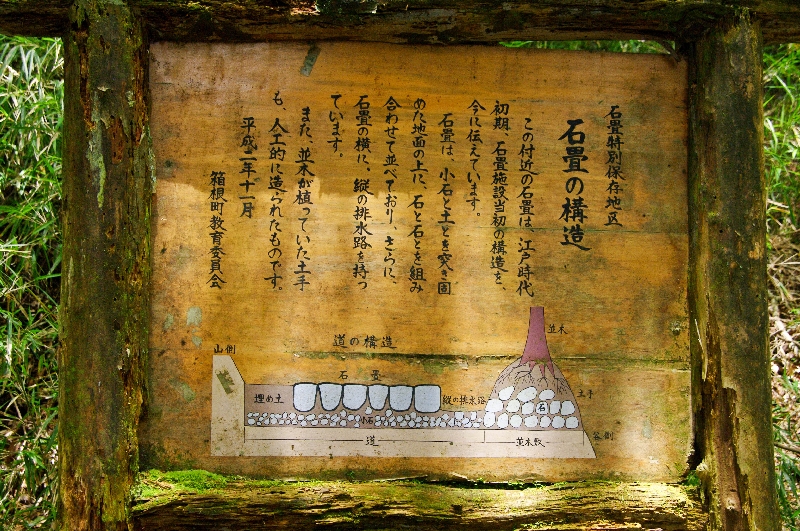 石畳特別保存地区
石畳の構造
この付近の石畳は、江戸時代
初期、石畳施設当初の構造を、
今に伝えています。
石畳は、小石と土とを突き固
めた地面の上に、石と石とを組み
合わせて並べており、さらに、
石畳の横に、縦の排水路を持っ
ています。
また、並木が植っていた土手
も、人工的に造られたものです。
平成二年十一月
箱根町教育委員会
道の構造
山側
石畳
並木
埋め土
縦の排水路
土手
石
小石
道
並木敷
谷側